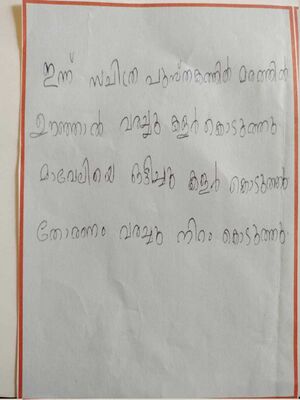 ഇന്ന് സചിത്ര പുസ്തകത്തിൽ മരത്തിൽ
ഊഞ്ഞാൽ വരച്ചു കളർ കൊടുത്തു
മാവേലിയെ ഒട്ടിച്ചു കളർ കൊടുത്തു
തോരണം വരച്ചു നിറം കൊടുത്തു.